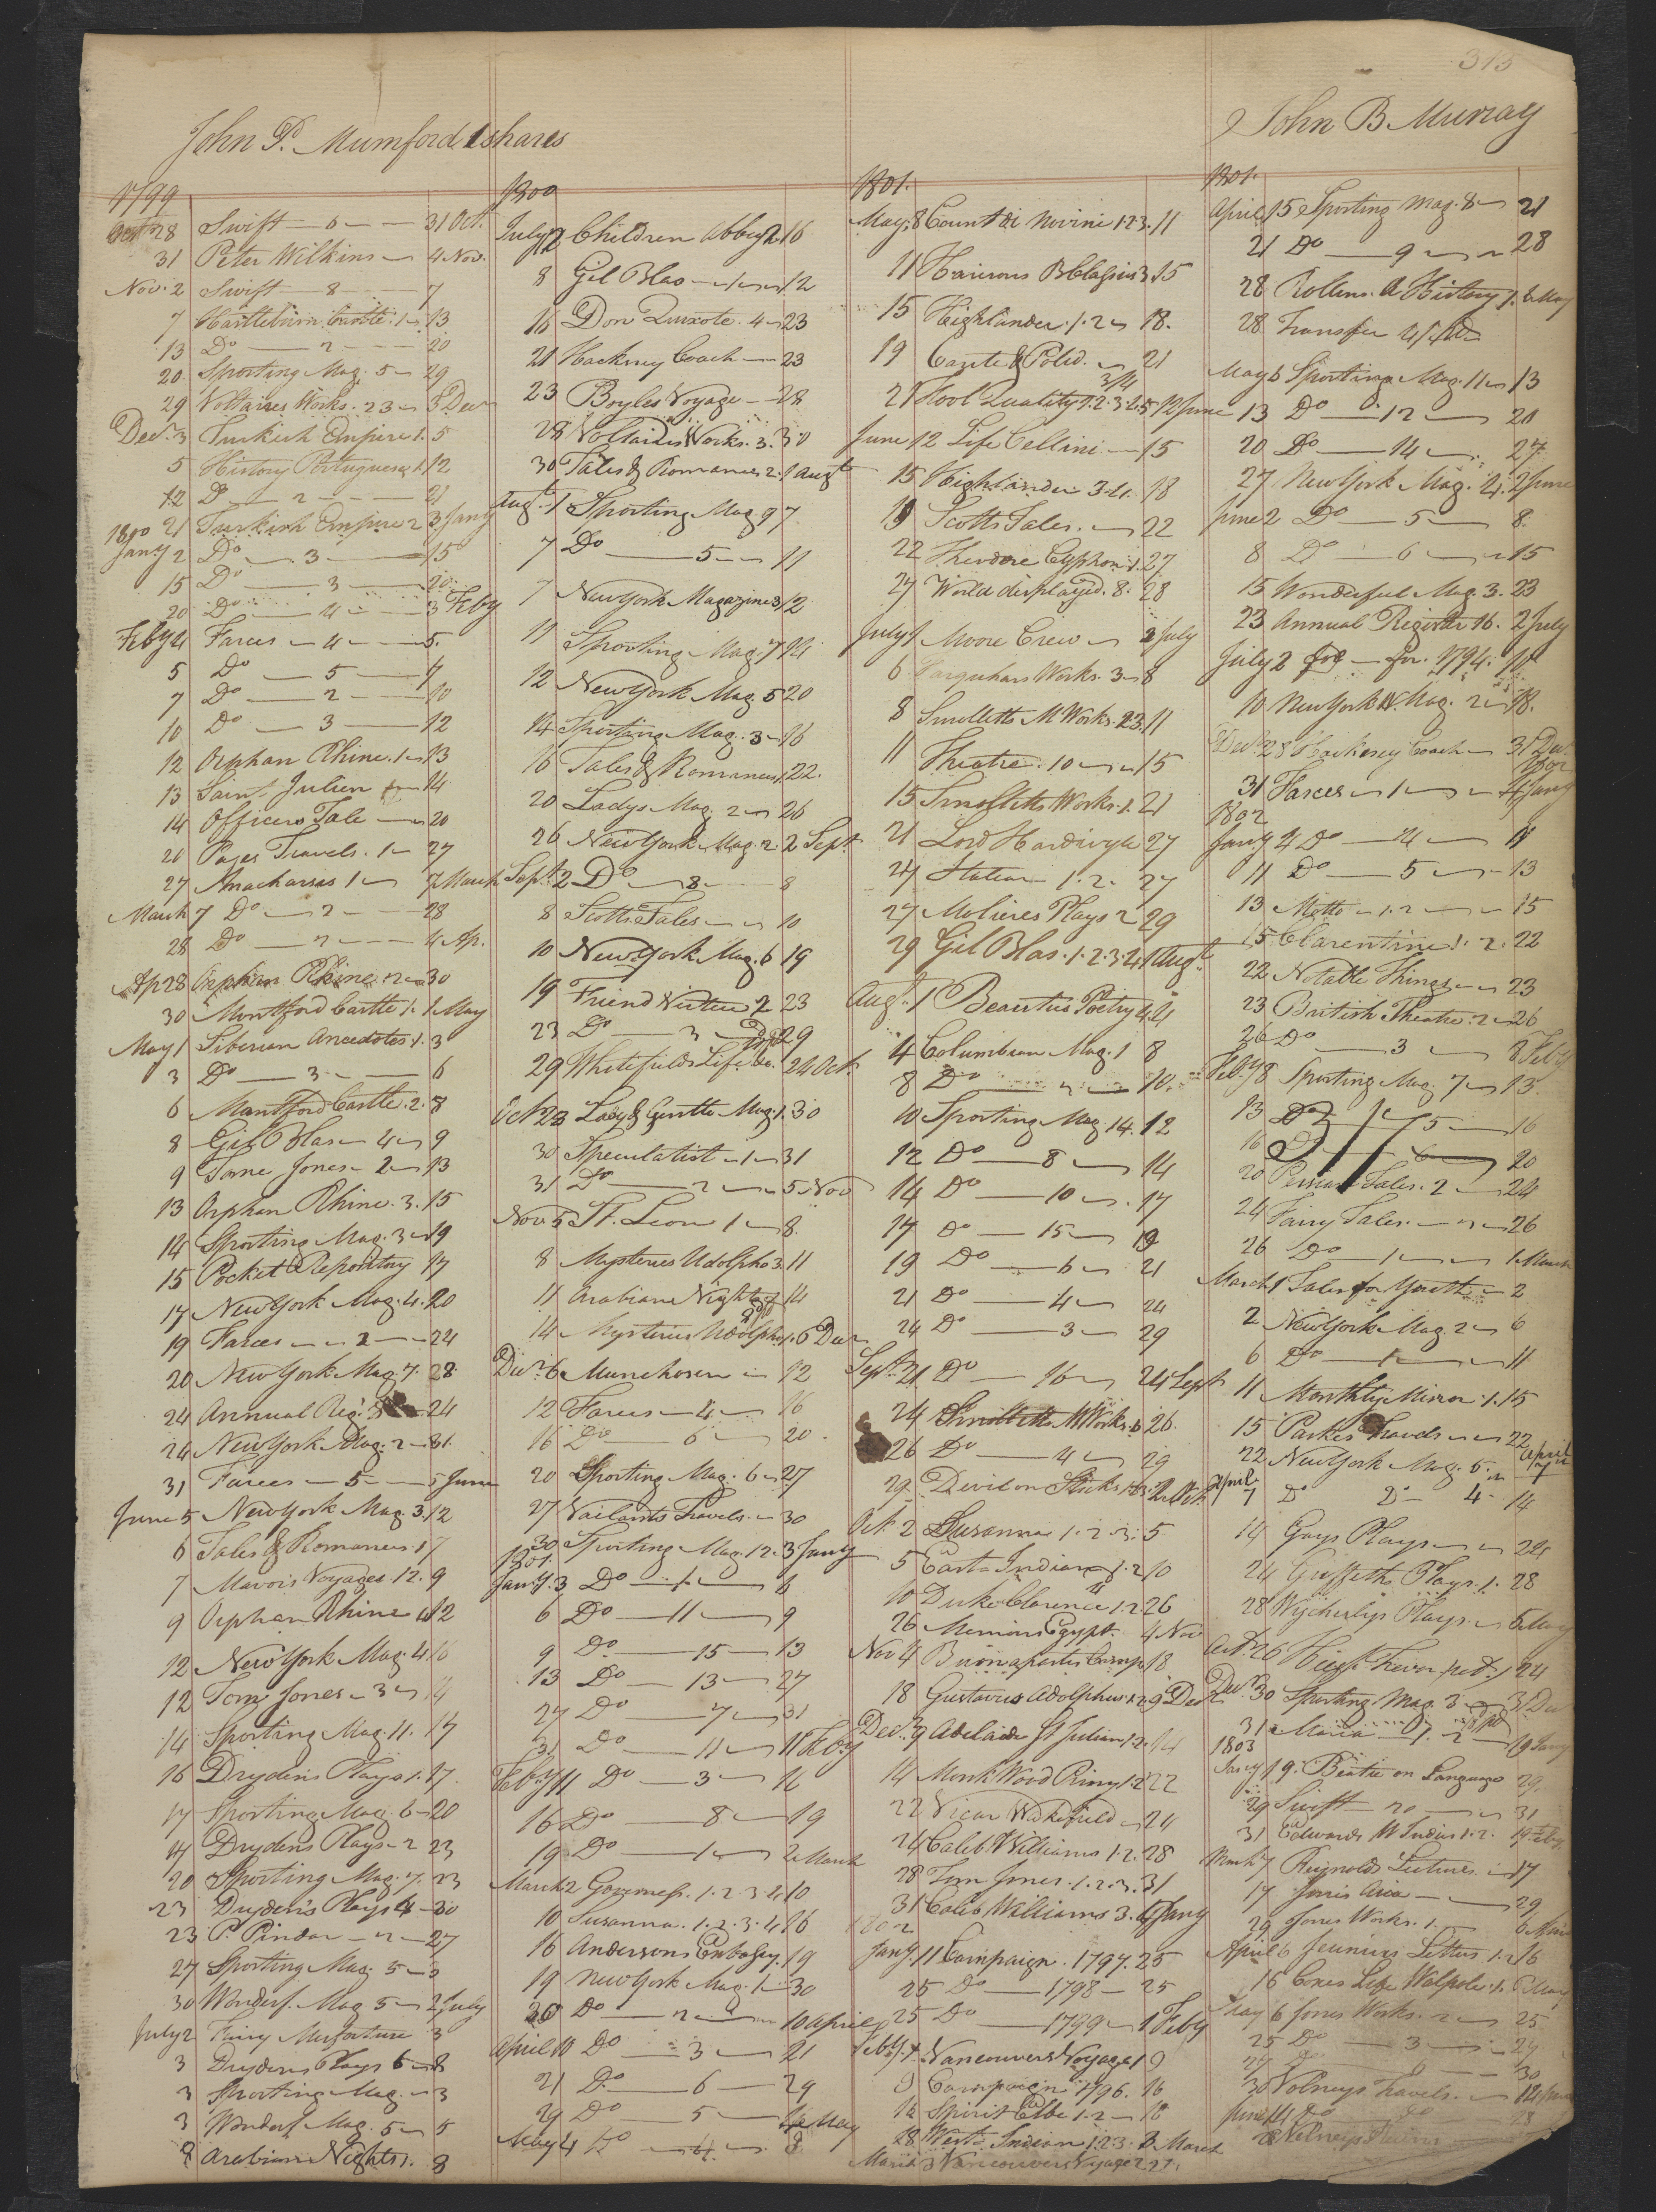 313
John P. Mumford 1 shares
1799
Oct 28 Swift — 6 — 31 Oct.
31 Peter Wilkins — 4 Nov.
Nov. 2 Swift — 8 — 7
7 Castle. 1 — 13
13 Do — 2 — 20
20 Sporting Mag. 5 — 29
29 Voltaires Works. 23 — 3 Decr
Decr. 3 Turkish Empire 1. 5
5 History Portuguese 1. 12
12 Do — 2 — 21
21 Turkish Empire 2 3 Jany
1800
Jany 2 Do — 3 — 15
15 Do — 3 — 20
20 Do — 4 — 3 Feby
Feby 4 Farces — 4 — 5.
5 Do — 5 — 7
7 Do — 2 — 10
10 Do — 3 — 12
12 Orphan Rhine. 1 — 13
13 Saint Julien — 14
14 Officers Tale — 20
20 Pages Travels. 1 — 27
27 Anacharsis 1 — 7 March
March 7 Do — 2 — 28
28 Do — 2 — 4 Ap.
Ap 28 Orphan Rhine 2 — 30
30 Montford Castle 1. 1 May
May 1 Siberian Anecdotes 1. 3
3 Do — 3 — 6
6 Montford Castle. 2. 8
8 Gil Blas — 4 — 9
9 Tome Jones — 2 — 13
13 Orphan Rhine. 3. 15
14 Sporting Mag. 3 — 19
15 Pocket Repository 17
17 New York Mag. 4. 20
19 Farces — 2 — 24
20 New York Mag. 7. 28
24 Annual Reg. 24
24 New York Mag. 2 — 31.
31 Farces — 5 — 5 June
June 5 New York Mag. 3. 12
6 Tales & Romances. 1 7
7 Mavors Voyages 12. 9
9 Orphan Rhine 4 12
12 New York Mag. 4 16
12 Tome Jones — 3 — 14
14 Sporting Mag. 11. 17
16 Drydens Plays 1. 17.
17 Sporting Mag. 6 — 20
17 Drydens Plays — 2 23
20 Sporting Mag. 7. 23
23 Drydens Plays 4 — 30
23 P. Pindar — 2 — 27
27 Sporting Mag. 5 — 3
30 Wonderf. Mag 5 — 2 July
July 2 Misfortune 3
3 Drydens Plays 6 — 8
3 Sporting Mag. — 3
3 Wonderf Mag. 5 — 5
8 Arabian Nights 1. 8
1800
July 12 Children Abbey 2. 16
8 Gil Blas — 1 — 12
16 Don Quixote. 4 — 23
21 Hackney Coach — 23
23 Boyles Voyage — 28
28 Voltaires Works. 3. 30
30 Tales & Romances 2. 1 Augt
Augt. 1 Sporting Mag 9 7.
7 Do — 5 — 11
7 New York Magazine 3 12
11 Sporting Mag. 7 14
12 New York Mag. 5 20
14 Sporting Mag. 3 — 16
16 Tales & Romances 1. 22.
20 Ladys Mag. 2 — 26
26 New York Mag. 2. 2 Sept.
Sept. 2 Do — 8 — 8
8 Scotts Tales — 10
10 New York Mag. 6 19
19 Friend Virtue 2 23
23 Do — 3 — 29
29 Whitefields Life &c. 24 Oct.
Oct 23 Lady & Gentle Mag. 1. 30
30 Speculatist — 1 — 31
31 Do — 2 — 5 Nov
Nov 5 St. Leon 1 — 8.
8 Mysteries Udolpho 3. 11
11 Arabian Nights 14
14 Mysteries Udolpho 1. 6 Decr
Decr. 6 Munchosen — 12
12 Farces — 4 — 16
16 Do — 6 — 20.
20 Sporting Mag. 6 — 27
27 Vailants Travels. — 30
30 Sporting Mag. 12. 3 Jany
1801.
Jany. 3 Do — 1 — 6
6 Do — 11 — 9
9 Do. — 15 — 13
13 Do — 13 — 27
27 Do — 7 — 31
31 Do — 11 — 11 Feby
Feby 11 Do — 3 — 16
16 Do — 8 — 19
19 Do — 1 — 2 March
March 2 Governess. 1. 2. 3. 4 10
10 Susanna. 1. 2. 3. 4 16
16 Andersons Embassy. 19
19 New York Mag. 1 — 30
30 Do — 2 — 10 April
April 10 Do — 3 — 21
21 Do — 6 — 29
29 Do — 5 — 4 May
May 4 Do — 4. 8
1801.
May. 8 Count di Novini 1. 2. 3. 11
11 3 15
15 Highlander. 1. 2 — 18.
19 21
21 Fool Quality 1. 2. 3. 4. 5 12 June
June 12 Life Cellini — 15
15 Highlander 3. 4. 18
19 Scotts Tales. — 22
22 Theodore Cyphon 1. 27
27 World displayed. 8. 28
July 1 Moore Crew — 2 July
6 Farquhars Works. 3 — 8
8 Smolletts M Works. 2 3. 11
11 Theatre. 10 — 15
15 Smolletts Works. 1. 21
21 Lord Hardivyle 27
24 Statica 1. 2. 27
27 Molieres Plays 2 29
29 Gil Blas. 1. 2. 3. 4 1 Augt
Augt. 1 Beauties Poetry 4. 4
4 Columbian Mag. 1 8
8 Do — 2 — 10.
10 Sporting Mag 14. 12
12 Do — 8 — 14
14 Do — 10 — 17
17 Do — 15 — 19
19 Do — 6 — 21
21 Do — 4 — 24
24 Do — 3 — 29
Sept. 21 Do — 16 — 24 Sept
24 Smolletts M Works. 6 26.
26 Do — 4 — 29
29 Devil on Sticks 2 Oct.
Oct. 2 Susanna 1. 2. 3. 5
5 East Indian 1. 2 10
10 Duke Clarence 1. 2 26
26 Memoirs Egypt. 4 Nov
Nov 4 Buonapartes Camp. 18
18 Gustavus Adolphus 1. 2. 9 Decr
Decr. 9 Adelaide St Julian 1. 2. 14
14 Monk Wood Priory 1. 2 22
22 Vicar Wakefield — 24
24 Caleb Williams 1. 2. 28
28 Tom Jones. 1. 2. 3. 31
31 Caleb Williams 3. 4 Jany
1802
Jany 11 Campaign. 1797. 25
25 Do — 1798 — 25
25 Do — 1799 — 1 Feby
Feby. 1. Vancouvers Voyage 1 9
9 Campaign 1796. 16
16 Spirit Elbe 1. 2 — 18
28 West Indian 1. 2. 3. 3 March
March 3 Vancouvers Voyage 2 27.
John B Murray
1801.
April 15 Sporting Mag. 8 — 21
21 Do — 9 — 28
28 Rollins A History 1. 6 May
28 Transfer
May 6 Sporting Mag. 11 — 13
13 Do — 12 — 20
20 Do — 14 — 27
27 New York Mag. 4. 2 June
June 2 Do — 5 — 8.
8 Do — 6 — 15
15 Wonderful Mag. 3. 23
23 Annual Register 16. 2 July
July 2 for 1794. 10
10 New York Mag. 2 — 18.
Decr 28 Hackney Coach — 31 Decr
31 Farces — 1 — 4 Jany
1802
Jany 4 Do — 4 — 11
11 Do — 5 — 13
13 Motto — 1. 2 — 15
15 Clarentine 1. 2. 22
22 Notable Things — 23
23 British Theatre. 2 — 26
26 Do — 3 — 8 Feby
Feby 8 Sporting Mag. 7 — 13.
13 Do — 5 — 16
16 Do — 6 — 20
20 Persian Tales. 2 — 24
24 Fairy Tales. — 2 — 26
26 Do — 1 — 1 March
March 1 Tales for Youth — 2
2 New York Mag. 2 — 6
6 Do — 1 — 11
11 Monthly Mirror. 1. 15
15 Parkes Travels — 22
22 New York Mag. 6. April 7
April 7 Do Do — 4 — 14
14 Gays Plays — 24
24 Griffeths Plays. 1. 28
28 Wycherlys Plays. — 6 May
Octr. 26 Hugh Trevor 24
Decr. 30 Sporting Mag. 3 — 31 Dec
31 Maria 1. 2 — 19 Jany
1803
Jany 19. Beatie on Language 29.
29 Swift — 20 — 31
31 Edwards W Indies 1. 2. 19 Feby
March 7 Reynolds Lectures. — 17
17 Arica — 29
29 Jones Works. 1. 6 April
April 6 Jeunius Letters 1. 2 16
16 Coxes Life Walpole. 1. 6 May
May 6 Jones Works. 2 — 25
25 Do — 3 — 27
27 Do — 6 — 30
30 Volneys Travels. — 14 June
June 14 Do
Volneys